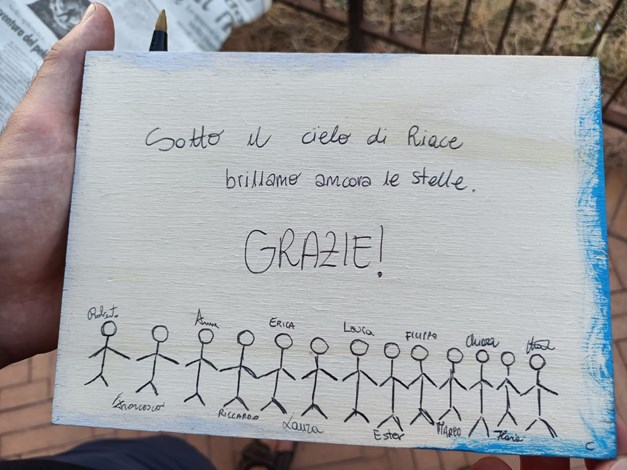 Sotto il cielo di Riace
brillano ancora le stelle.
GRAZIE!
Roberto Anna ERICA Luca FILIPPO Chiara
Francesco RICCARDO Laura Ester MARCO Ilaria